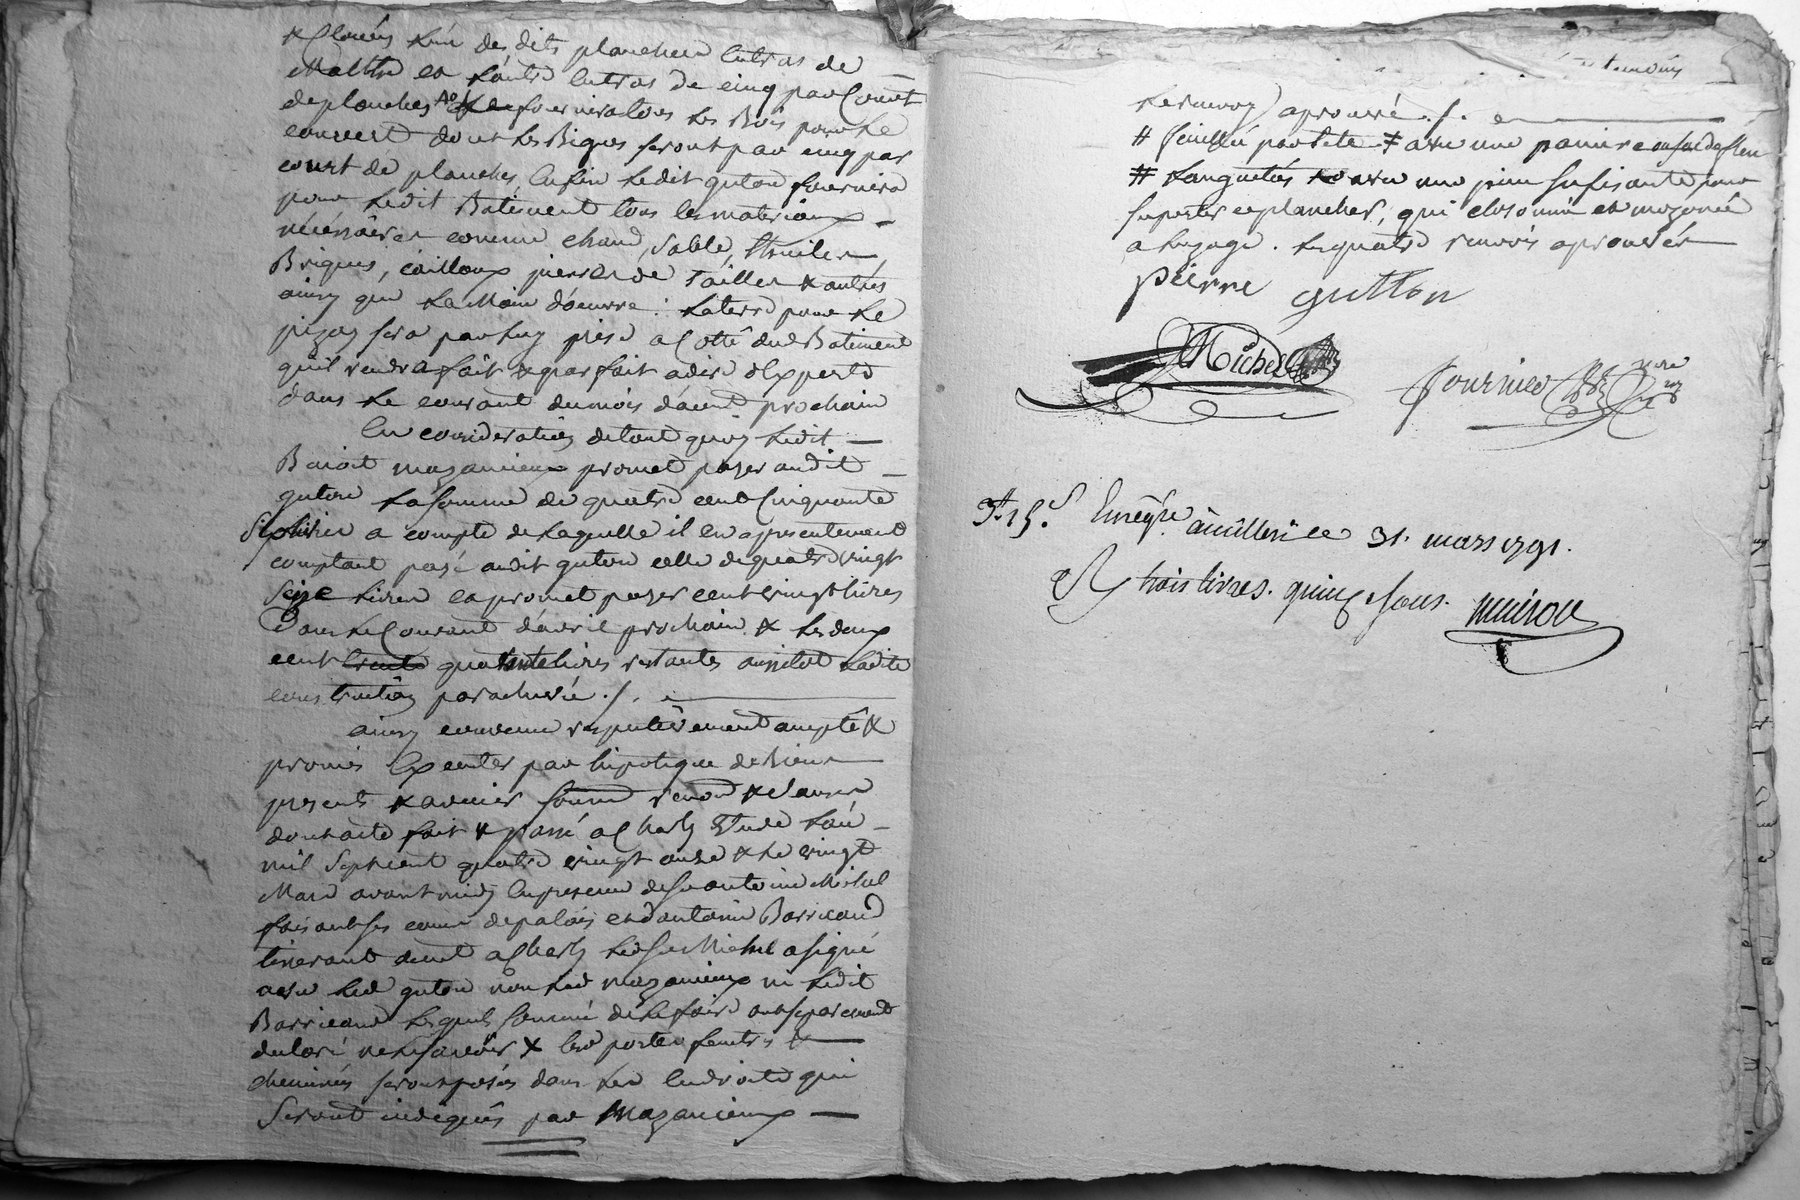 & Cloués l'un des dits planchers En tras de
Maître et l'autre En tras de cinq par Court
de planches fournira tous les Bois pour le
couvert dont les Bigues seront par cinq par
court de planches Enfin ledit guton fournira
pour ledit Batiment tous les materiaux
nécessaires comme chaud, sable, thuiles,
Briques, cailloux pierre de Tailles & autres
ainsy que la Main d'oeuvre : la terre pour le
pizay sera par luy prise a Cotté dud Batiment
qu'il rendra fait & parfait a dire d'Experts
dans le courant du mois d'aout prochain
En consideration de tout quoy ledit
Benoit mazancieux promet payer audit
guton la somme de quatre cent Cinquante
Six livres a compte de laquelle il en a presentement
comptant payé audit guton celle de quatre vingt
Seize livres et promet payer cent vingt livres
Dans le Courant d'avril prochain & les deux
cent trente quarante livres restantes aussitot ladite
construction parachevée ./.
ainsy convenu respectivement accepté &
promis Executer par hipoteque de Biens
presents & avenir soumis renon & clauses
dont acte fait & passé a Charly Etude l'an
mil sept cent quatre vingt onze & le vingt
Mars avant midy En presence de Sr antoine Michel
faisant ses cours de palais et d'antoine Barricaud
tisserant demt a Charly led Sr Michel a signé
avec led guton non led mazancieux ni ledit
Barricaud lesquels Sommé de le faire ont separement
declaré ne le savoir & les portes fenetres &
cheminées seront posées dans les Endroits qui
Seront indiqués par Mazancieux
temoins
le renvoy approuvé ./.
# avec une panne
# Languetés avec une piece sufisante pour
suporter ce plancher, qui
a l'uzage . les quatre renvois aprouvés
pierre gutton
Michel
fournier
Fo. 15. Enregtre à millery le 31. mars 1791.
R trois livres. quinze sous. muiron